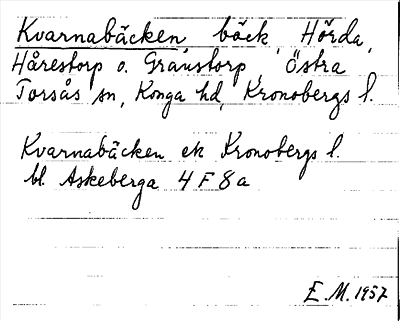 Kvarnabäcken, bäck, Hörda,
Hårestorp o. Granstorp, Östra
Torsås sn, Konga hd, Kronobergs l.
Kvarnabäcken ek Kronobergs l.
bl. Askeberga 4 F 8 a
E. M. 1957